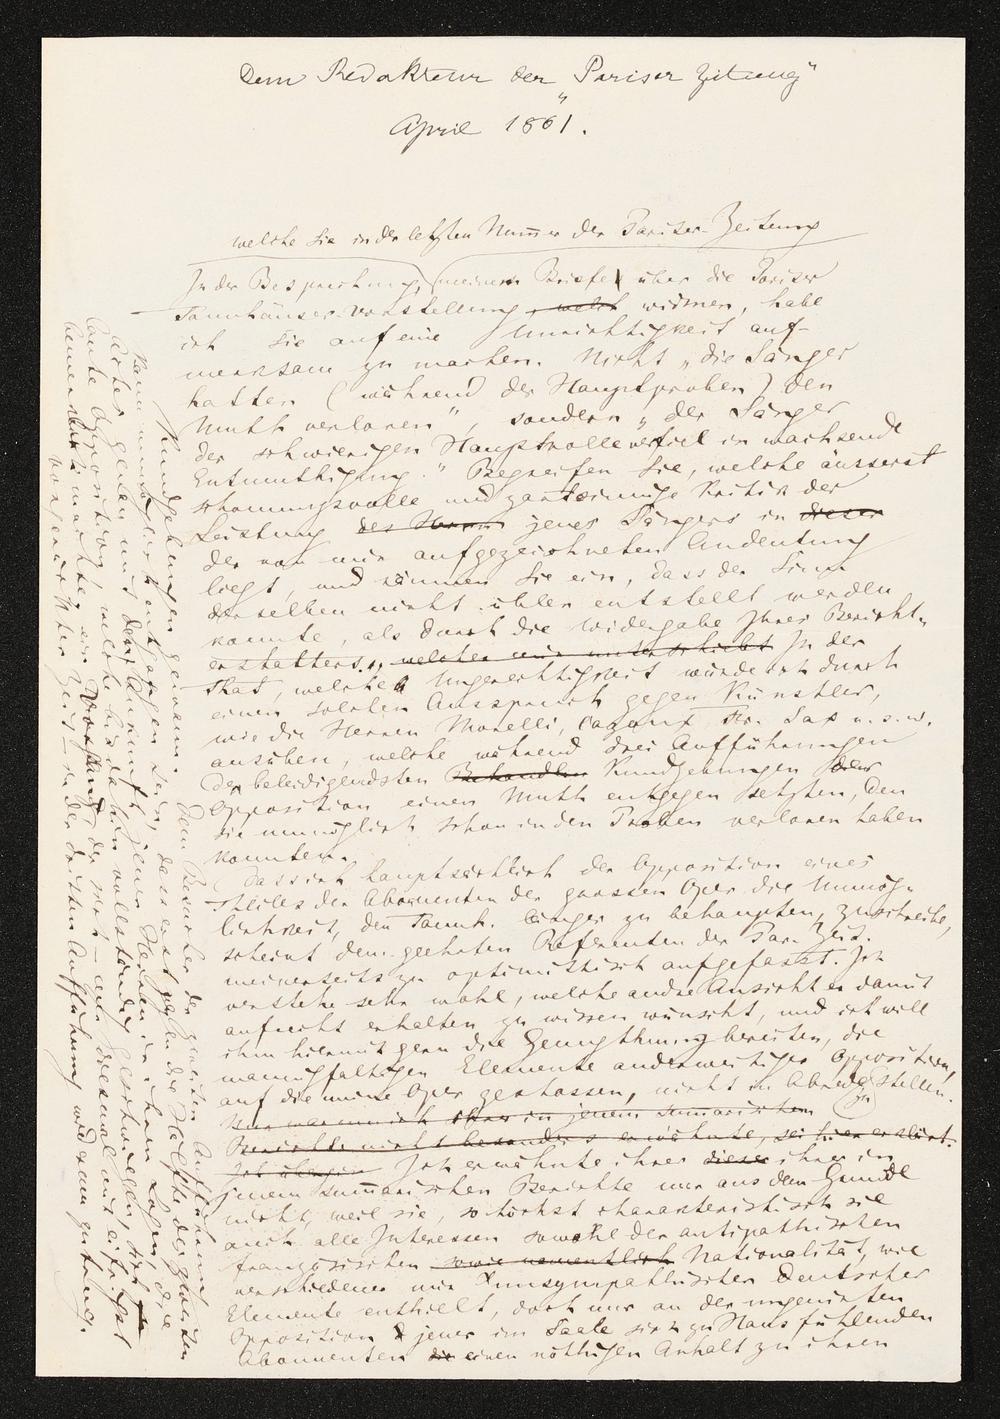 Dem Redakteur der „Pariser Zeitung"
April 1861.
welche Sie in der letzten Numer der Pariser-Zeitung
In der Besprechung, meinem Briefe über die Pariser
Tannhäuser-Vorstellung, welch widmen, habe
ich Sie auf eine Unrichtigkeit auf-
merksam zu machen. Nicht „die Sänger
hatten (während der Hauptproben) den
Muth verloren", sondern „der Sänger
der schwierigen Hauptrolle verfiel in wachsende
Entmuthigung." Begreifen Sie, welche äusserst
schonungsvolle und zartsinnige Kritik der
Leistung des Herrn jenes Sängers in dieser
der von mir aufgezeichneten Andeutung
liegt, und räumen Sie ein, dass der Sinn
derselben nicht übler entstellt werden
konnte, als durch die Widergabe Ihres Bericht-
erstatters, welcher mir unterschiebt In der
That, welche Ungerechtigkeit würde ich durch
einen solchen Ausspruch gegen Künstler,
wie die Herren Morelli, Cazaux, Fr. Sax u.s.w.
ausüben, welche während drei Aufführungen
den beleidigendsten Behandlun Kundgebungen der
Opposition einen Muth entgegen setzten, den
sie unmöglich schon in den Proben verloren haben
konnten.
Dass ich hauptsächlich der Opposition eines
Theiles der Abonnenten der grossen Oper die Unmög-
lichkeit, den Tannh. länger zu behaupten, zuschreibe,
scheint dem geehrten Referenten der Par. Zeit.
meinerseits zu optimistisch aufgefasst. Ich
verstehe sehr wohl, welche andre Ansicht er damit
aufrecht erhalten zu wissen wünscht, und ich will
ihm hiermit gern die Genugthuung bereiten, die
mannigfaltigen Elemente anderweitiger Opposition,
auf die meine Oper gestossen, nicht in Abrede stellen.
zu
Nur warum ich ihrer in jenem sumarischen
Berichte nicht besonders erwähnte, sei hier erklärt.
Ich übergin Ich erwähnte ihrer dieser ihrer in
jenem sumarischen Berichte nur aus dem Grunde
nicht, weil sie, so höchst charakteristisch sie
auch alle Interessen sowohl der antipathischen
französischen sowie namentlich Nationalität, wie
verschiedener mir unsympathischer deutscher
Elemente enthielt, doch nur an der ungenirten
Opposition jener im Saale sich zu Haus fühlenden
Abonnenten die einen nöthigen Anhalt zu ihren
Kundgebungen gewann. Dem Besucher der zweiten Aufführung
kann unmöglich entgangen sein, dass erst gegen die Hälfte des zweiten
Actes genau mit der Ankunft jener Herren in ihren Logen, die
laute Opposition, welche bis dahin vollständig geschwiegen, sich
bemerkbar machte; ein Vorstand der mir – auch diesmal mit eifrigst
vorgerückter Zeit – in der dritten Aufführung wiederum zutrug.